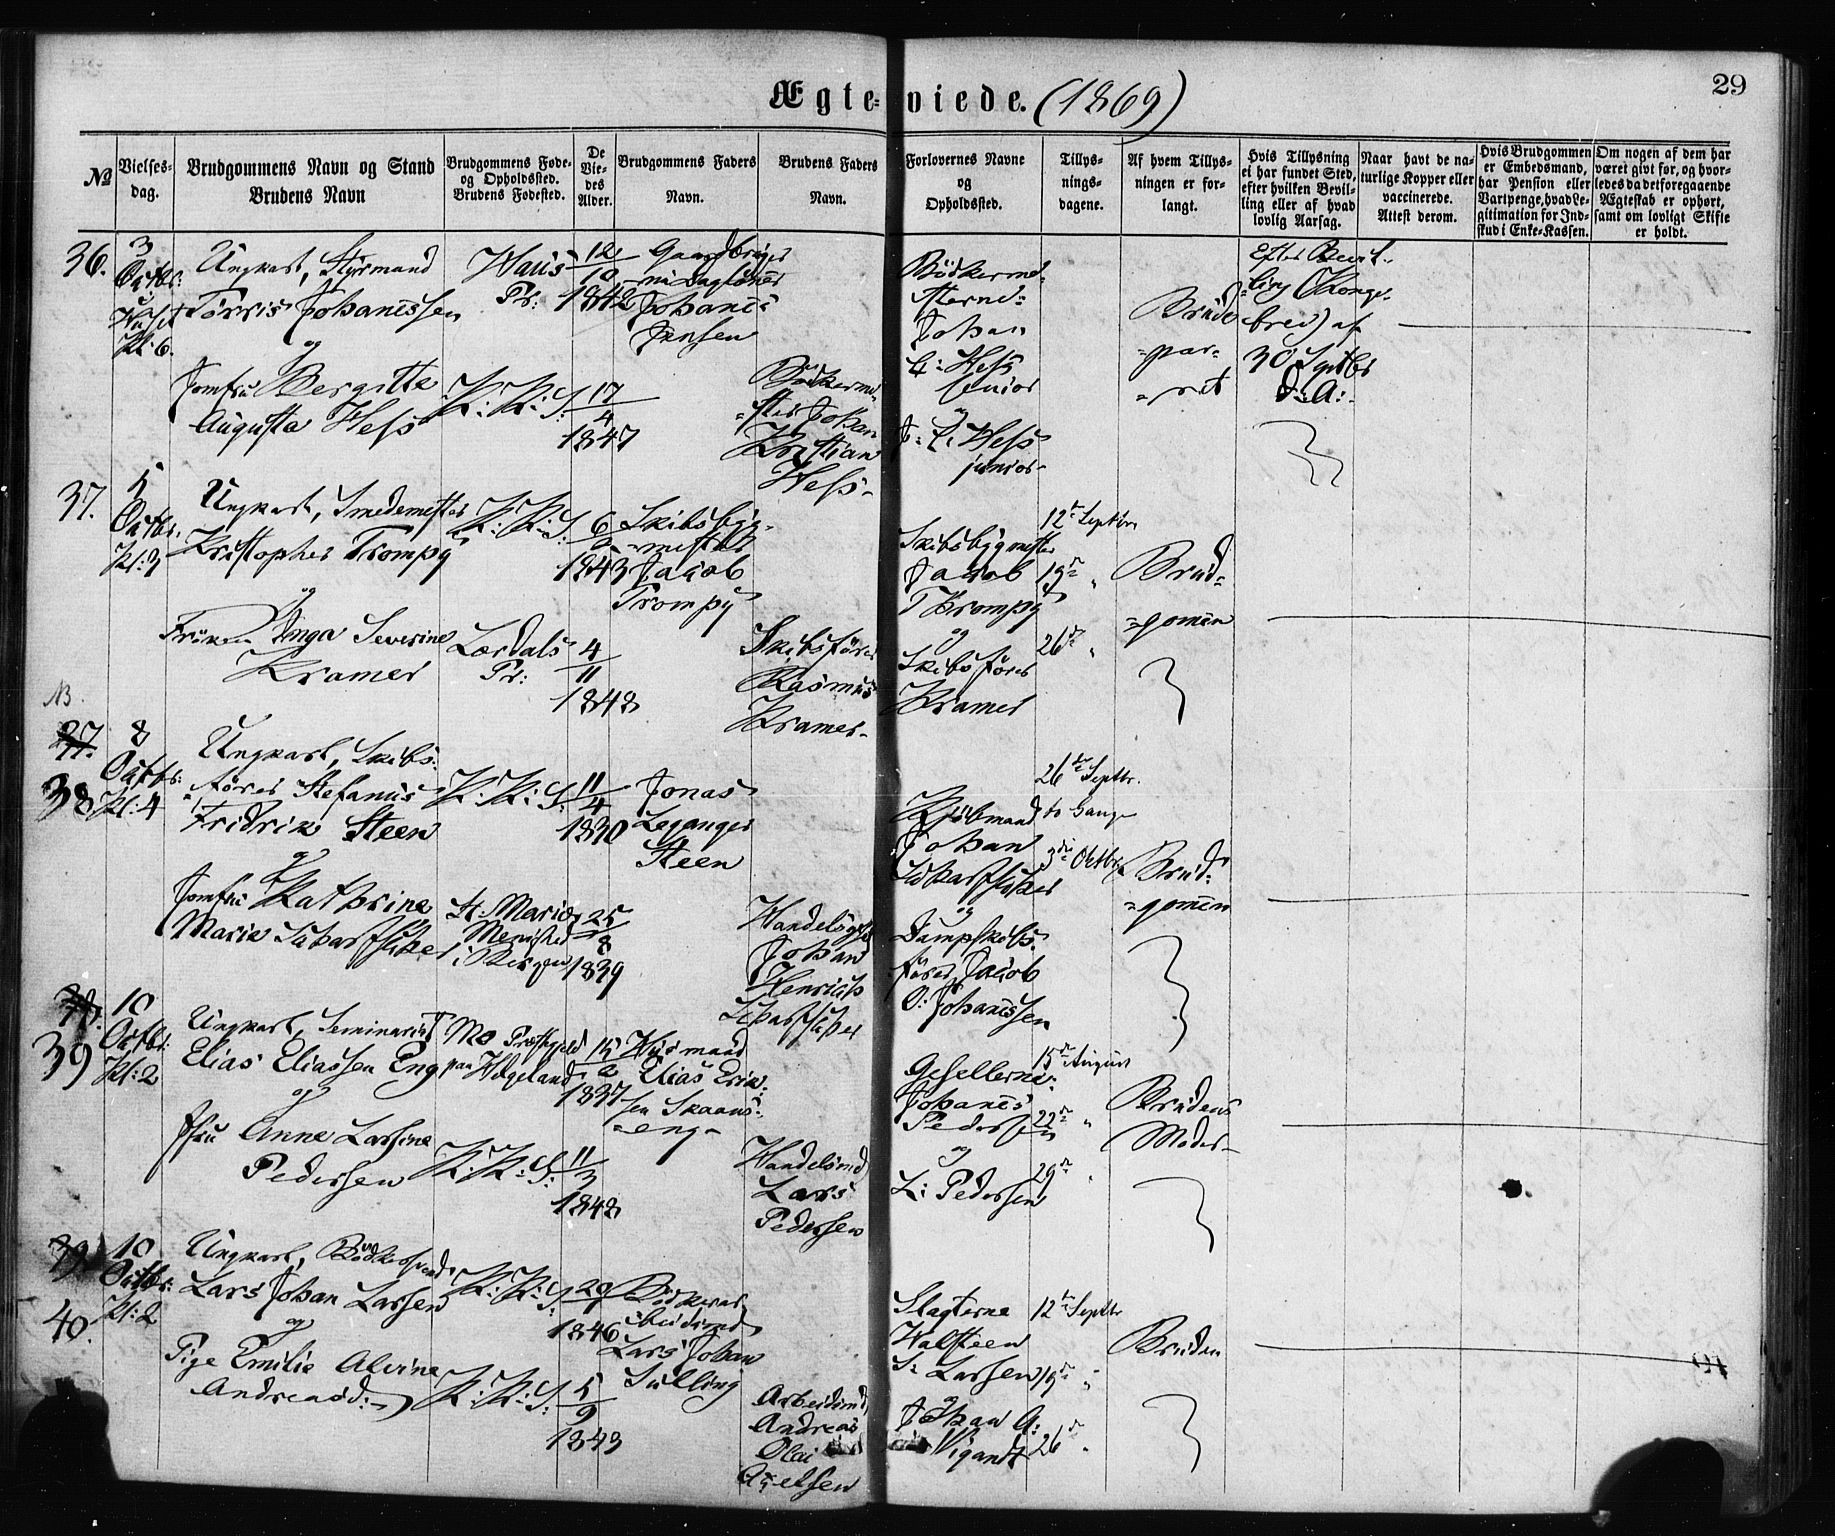 Ægte-viede. (1869)
29
No
Vielses-
dag.
Brudgommens Navn og Stand
Brudens Navn
Brudgommens Føde-
og Opholdssted.
Brudens Fødested.
De
Vie-
des
Alder.
Brudgommens Faders
Navn.
Brudens Faders
Navn.
Forlovernes Navne
og
Opholdssted.
Tillys-
nings-
dagene.
Af hvem Tillys-
ningen er for-
langt.
Hvis Tillysning
ei har fundet Sted,
efter hvilken Bevil-
ling eller af hvad
lovlig Aarsag.
Naar havt de na-
turlige Kopper eller
vaccinerede.
Attest derom.
Hvis Brudgommen
er Embedsmand,
har Pension eller
Vartpenge, hvad Le-
gitimation for Ind-
skud i Enke-Kassen.
Om nogen af dem har
været givt før, og hvor-
ledes da det foregaaende
Ægteskab er ophørt,
samt om lovligt Skifte
er holdt.
36.
3
Octbr:
Kl: 6.
Ungkarl, Styrmand
Tørris Johanessen
og
Jomfru Bergitte
Augusta Hess
Haus
Pr:
K: K: S:
12
10
1842
17
4
1847
Gaardbruger
Johanes
Jensen
Bødkerme-
ster Johan
Kristian
Hess
Bødkerme-
sterne
Johan
C: Hess
senior
og
J: C: Hess
junior
Brude-
par-
ret
Efter Bevil-
ling (Konge-
brev) af
30 Septbr
d: A:
37.
5
Octbr.
Kl: 7
Ungkarl, Smedemester
Kristopher Trompy
og
Inga Severine
Kramer
K: K: S:
Lærdals
Pr:
6
1843
4
11
1848
Skibsbyg-
mester
Jacob
Trompy
Skibsfører
Rasmus
Kramer
Skibsbygmester
Jacob
Thrompy
og
Skibsfører
Kramer
12te Septbr
19de "
26de "
Brud-
gomen
NB.
37.
38
8
Octbr:
Kl: 4
Ungkarl, Skibs-
fører Stefanus
Fridrik Steen
og
Jomfru Kathrine
Marie
K: K: S:
St. Marie
Menished
i Bergen
11
4
1830
25
8
1839
Jonas
Leganger
Steen
Johan
Henrich
Kjøbmand
Johan
og
Dampskibs-
fører Jacob
O: Johanessen
26de Septbr.
to Gange
3die Oktbr
Brud-
gomen
39
10
Octbr:
Kl: 2
Ungkarl, Seminarist
Elias Eliassen Eng
og
Jfru Anne Larsine
Pedersen
Mo Præstegjeld
paa Helgeland
K: K: S:
15
2
1837
11
3
1848
Husmand
Elias Erik-
sen Skaans-
eng
Handelsmd
Lars
Pedersen
Gesellerne
Johanes
Pedersen
og
L: Pedersen
15de August
22de "
29de "
Brudens
Moder
39.
40.
10
Octbr:
Kl: 2
Ungkarl, Bødkersvend
Lars Johan Larsen
og
Pige Emilie Alvine
Andreasd:
K: K: S:
K: K: S:
20
1846
5
9
1843
Bødkerar-
beidsmd
Lars Johan
Sulling
Arbeidsmd
Andreas
Olai
Axelsen
Slagterne
Walsteen
S: Larsen
og
Johan A:
Wigandt
12te Septbr
19de "
26de "
Bruden